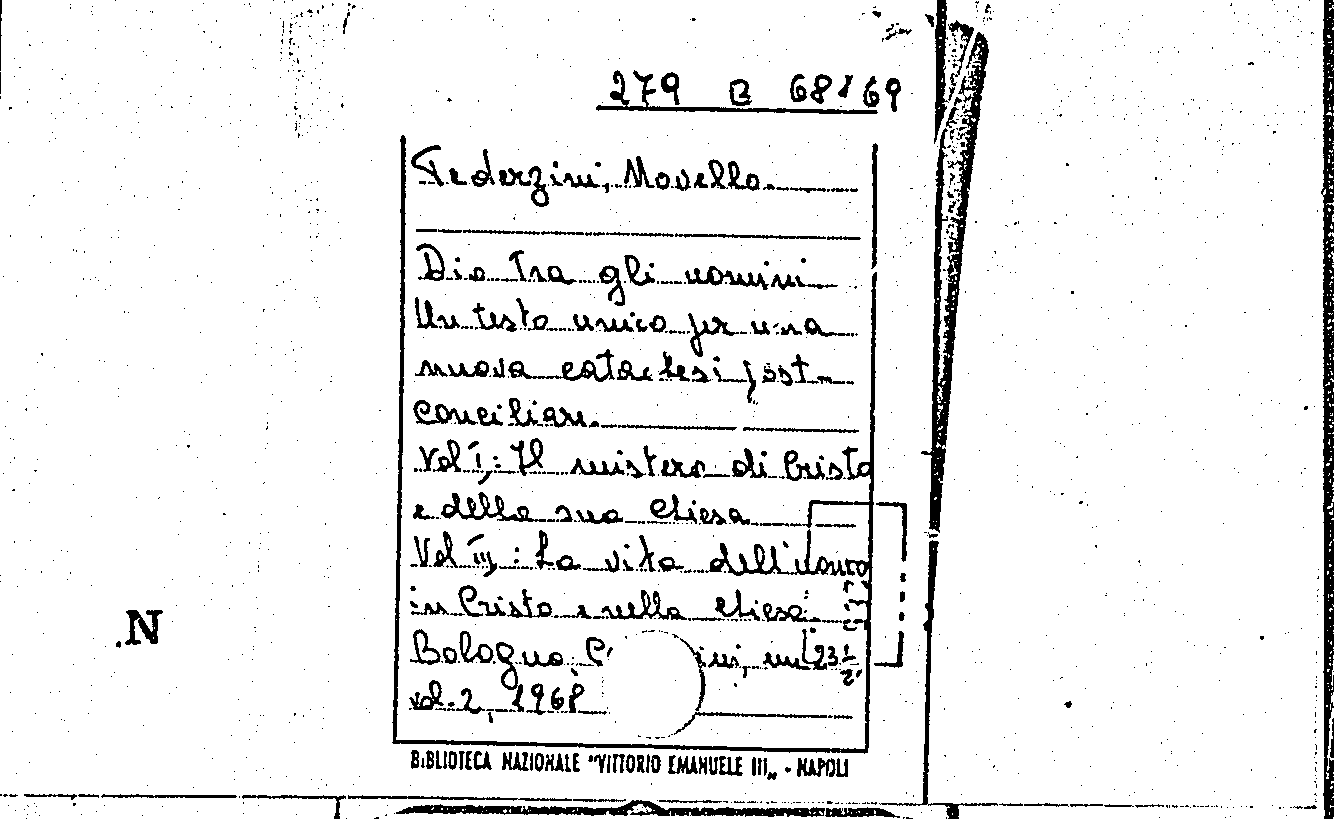 279 B 68 69
Federzini, Novello.
Dio tra gli uomini
Un testo unico per una
nuova catechesi post-
conciliare.
Vol I,: Il mistero di Cristo
e della sua Chiesa
Vol III, : La vita dell'uomo
in Cristo e nella Chiesa.
Bologna, in
vol. 2, 1968
231
2
N
BIBLIOTECA NAZIONALE "VITTORIO EMANUELE III„ - NAPOLI